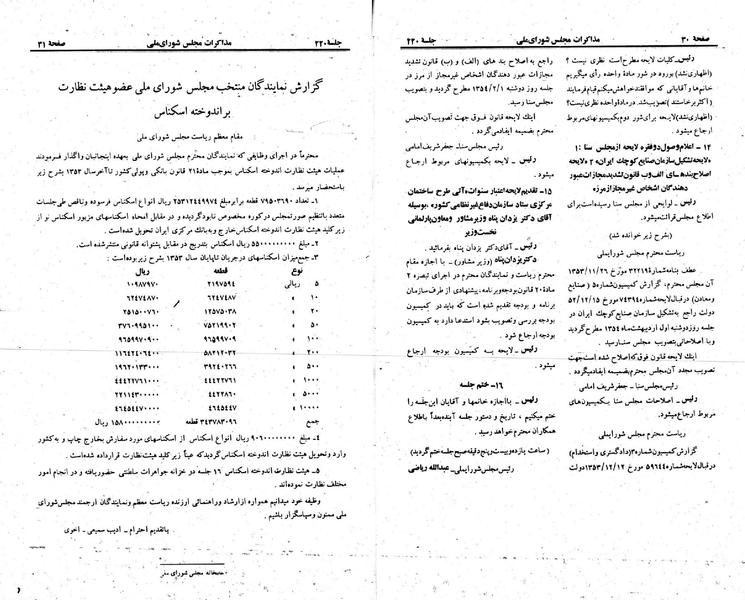 صفحهٔ ۳۰
مذاکرات مجلس شورای ملی
جلسهٔ ۲۲۰
رئیس ـ کلیات لایحه مطرح است نظری نیست ؟
(اظهاری نشد) بورود در شور مادهٔ واحده رأی میگیریم
خانمها و آقایانی که موافقند خواهش میکنم قیام فرمایند
(اکثر برخاستند) تصویب شد. در مادهٔ واحده نظری نیست ؟
(اظهاری نشد) لایحه برای شور دوم بکمیسیونهای مربوط
ارجاع میشود .
۱۴ - اعلام وصول دو فقره لایحه از مجلس سنا : ۱
«لایحه تشکیل سازمان صنایع کوچک ایران، ۲ «لایحه
اصلاح بندهای الف و ب قانون تشدید مجازات عبور
دهندگان اشخاص غیرمجاز از مرز»
رئیس ـ لوایحی از مجلس سنا رسیده است برای
اطلاع مجلس قرائت میشود .
(بشرح زیر خوانده شد)
ریاست محترم مجلس شورایملی
عطف بنامه شماره ۳۲۲۱۹ مورخ ۱۳۵۳/۱۱/۲۶
آن مجلس محترم، گزارش کمیسیون شمارهٔ ۵ (صنایع
ومعادن) در قبال لایحه شماره ۷۴۳۹۴ مورخ ۵۲/۱۲/۱۵
دولت راجع به تشکیل سازمان صنایع کوچک ایران در
جلسه روز دوشنبه اول اردیبهشت ماه ۱۳۵۴ مطرح گردید
وبا اصلاحاتی بتصویب مجلس سنا رسید .
اینک لایحه قانون فوق که اصلاح شده است جهت
تصویب مجدد آن مجلس محترم بضمیمه ایفاد میگردد .
رئیس مجلس سنا ـ جعفر شریف امامی
رئیس ـ اصلاحات مجلس سنا بکمیسیون های
مربوط ارجاع میشود.
ریاست محترم مجلس شورایملی
گزارش کمیسیون شماره ۳ (دادگستری و استخدام)
در قبال لایحه شماره ۵۹۶۴۴ مورخ ۱۳۵۳/۱۲/۱۲ دولت
راجع به اصلاح بند های (الف) و (ب) قانون تشدید
مجازات عبور دهندگان اشخاص غیرمجاز از مرز در
جلسه روز دوشنبه ۱۳۵۴/۲/۱ مطرح گردید و بتصویب
مجلس سنا رسید .
اینک لایحه قانون فوق جهت تصویب آن مجلس
محترم بضمیمه ایفاد میگردد .
رئیس مجلس سنا ـ جعفر شریف امامی
رئیس ـ لایحه بکمیسیونهای مربوط ارجاع
میشود .
۱۵ - تقدیم لایحه اعتبار سنوات آتی طرح ساختمان
مرکزی ستاد سازمان دفاع غیر نظامی کشور، بوسیله
آقای دکتر یزدان پناه وزیر مشاور و معاون پارلمانی
نخست وزیر
رئیس ـ آقای دکتر یزدان پناه بفرمائید .
دکتر یزدان پناه (وزیر مشاور) ـ با اجازه مقام
محترم ریاست و نمایندگان محترم در اجرای تبصره ۲
مادهٔ ۲۰ قانون بودجه و برنامه، پیشنهادی از طرف سازمان
برنامه و بودجه تقدیم شده است که باید در کمیسیون
بودجه بررسی و تصویب بشود استدعا دارد به کمیسیون
بودجه ارجاع شود .
رئیس ـ لایحه به کمیسیون بودجه ارجاع
میشود .
۱۶ - ختم جلسه
رئیس ـ با اجازه خانمها و آقایان این جلسه را
ختم میکنیم ، تاریخ و دستور جلسه آینده بعداً با اطلاع
همکاران محترم خواهد رسید .
(ساعت یازده و بیست و پنج دقیقه صبح جلسه ختم گردید)
رئیس مجلس شورایملی ـ عبدالله ریاضی
جلسهٔ ۲۲۰
مذاکرات مجلس شورای ملی
صفحهٔ ۳۱
گزارش نمایندگان منتخب مجلس شورای ملی عضو هیئت نظارت
بر اندوخته اسکناس
مقام معظم ریاست مجلس شورای ملی
محترماً در اجرای وظایفی که نمایندگان محترم مجلس شورای ملی بعهده اینجانبان واگذار فرمودند
عملیات هیئت نظارت اندوخته اسکناس بموجب مادهٔ ۲۱ قانون بانکی و پولی کشور تا آخر سال ۱۳۵۳ بشرح زیر
باستحضار میرسد .
۱- تعداد ۷۹۵۰۳۶۹۰ قطعه برابر مبلغ ۲۵۳۱۲۴۴۹۹۷۴ ریال انواع اسکناس فرسوده و ناقص طی جلسات
متعدد با تنظیم صورتمجلس در کوره مخصوص نابود گردیده و در مقابل امحاء اسکناسهای مزبور اسکناس نو از
زیر کلید هیئت نظارت اندوخته اسکناس خارج و به بانک مرکزی ایران تحویل شده است .
۲- مبلغ ۵۵۰۰۰۰۰۰۰۰۰ ریال اسکناس بتدریج در مقابل پشتوانه قانونی منتشر شده است .
۳- جمع میزان اسکناسهای در جریان تا پایان سال ۱۳۵۳ بشرح زیر بوده است :
نوع قطعه ریال
۵ ریالی ۲۱۹۷۵۹۴ ۱۰۹۸۷۹۷۰
۱۰ » ۶۲۴۷۴۸۷ ۶۲۴۷۴۸۷۰
۲۰ » ۱۲۵۷۵۰۳۸ ۲۵۱۵۰۰۷۶۰
۵۰ » ۷۵۲۱۹۹۰۲ ۳۷۶۰۹۹۵۱۰۰
۱۰۰ » ۹۶۵۹۹۷۰۹ ۹۶۵۹۹۷۰۹۰۰
۲۰۰ » ۵۸۲۱۲۰۳۲ ۱۱۶۴۲۴۰۶۴۰۰
۵۰۰ » ۳۹۲۴۰۲۶۶ ۱۹۶۲۰۱۳۳۰۰۰
۱۰۰۰ » ۴۴۴۲۲۷۶۱ ۴۴۴۲۲۷۶۱۰۰۰
۵۰۰۰ » ۴۴۲۲۸۶۰ ۲۲۱۱۴۳۰۰۰۰۰
۱۰۰۰۰ » ۴۶۴۵۴۴۷ ۴۶۴۵۴۴۷۰۰۰۰
جمع ۳۴۳۷۸۳۰۹۶ قطعه ۱۵۸۰۰۰۰۰۰۰۰۰ ریال
۴- مبلغ ۹۰۶۰۰۰۰۰۰۰۰ ریال انواع اسکناس از اسکناسهای مورد سفارش بخارج چاپ و به کشور
وارد و تحویل هیئت نظارت گردیده که عیناً زیر کلید هیئت نظارت قرار داده شده است .
۵- هیئت نظارت اندوخته اسکناس ۱۶ جلسه در خزانه جواهرات سلطنتی حضور یافته و در انجام امور
مختلف نظارت نموده اند .
وظیفه خود میدانیم همواره از ارشاد و راهنمائی ارزنده ریاست معظم و نمایندگان ارجمند مجلس شورای
ملی ممنون و سپاسگزار باشیم .
با تقدیم احترام ـ ادیب سمیعی ـ اخوی
چاپخانه مجلس شورای ملی